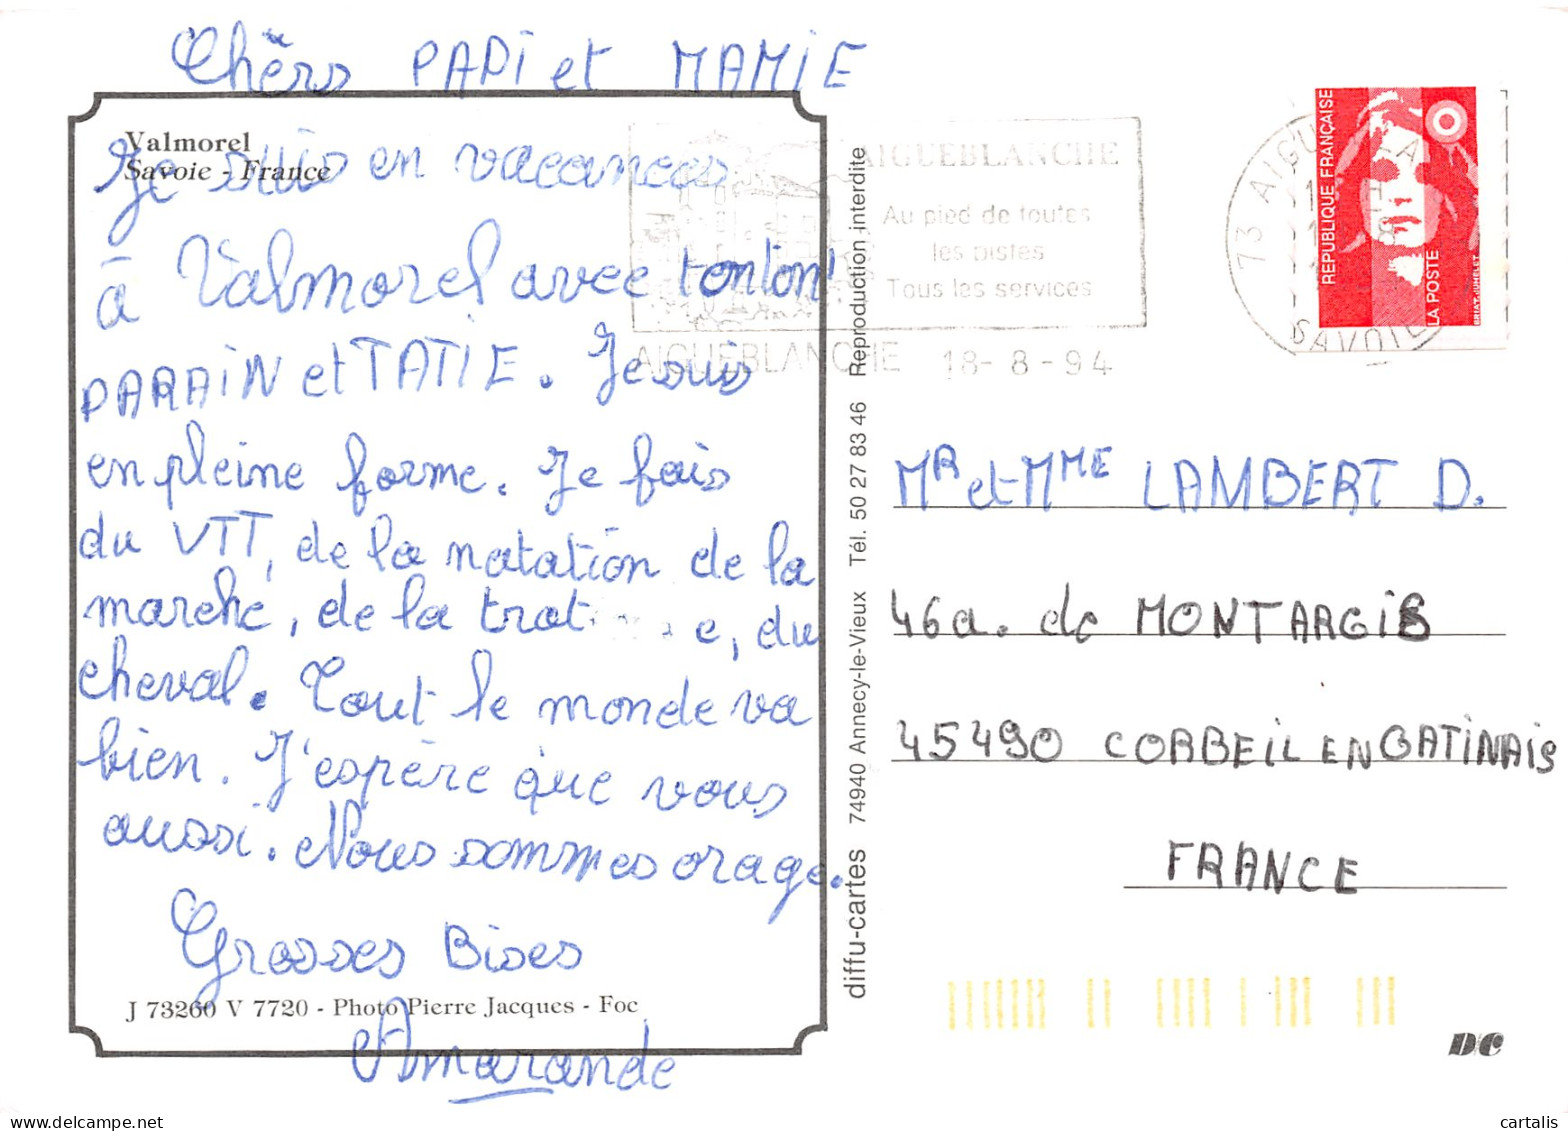 Chèrs PAPI et MAMIE
Valmorel
Savoie - France
Je suis en vacances
à Valmorel avec tonton
PARAIN et TATIE. Je suis
en pleine forme. Je fais
du VTT, de la natation de la
marche, de la trot e, du
cheval. Tout le monde va
bien. J'espère que vous
aussi. Nous sommes orage.
Grosses Bises
J 73260 V 7720 - Photo Pierre Jacques - Foc
Amarande
diffu-cartes 74940 Annecy-le-Vieux Tél. 50 27 83 46 Reproduction interdite
AIGUEBLANCHE
Au pied de toutes
les pistes
Tous les services
AIGUEBLANCHE 18-8-94
73 AIGU
SAVOIE
REPUBLIQUE FRANÇAISE
LA POSTE
BRIAT.JUMELET
MR et MME LAMBERT D.
46a. de MONTARGIS
45490 CORBEIL EN GATINAIS
FRANCE
D/C
cartalis